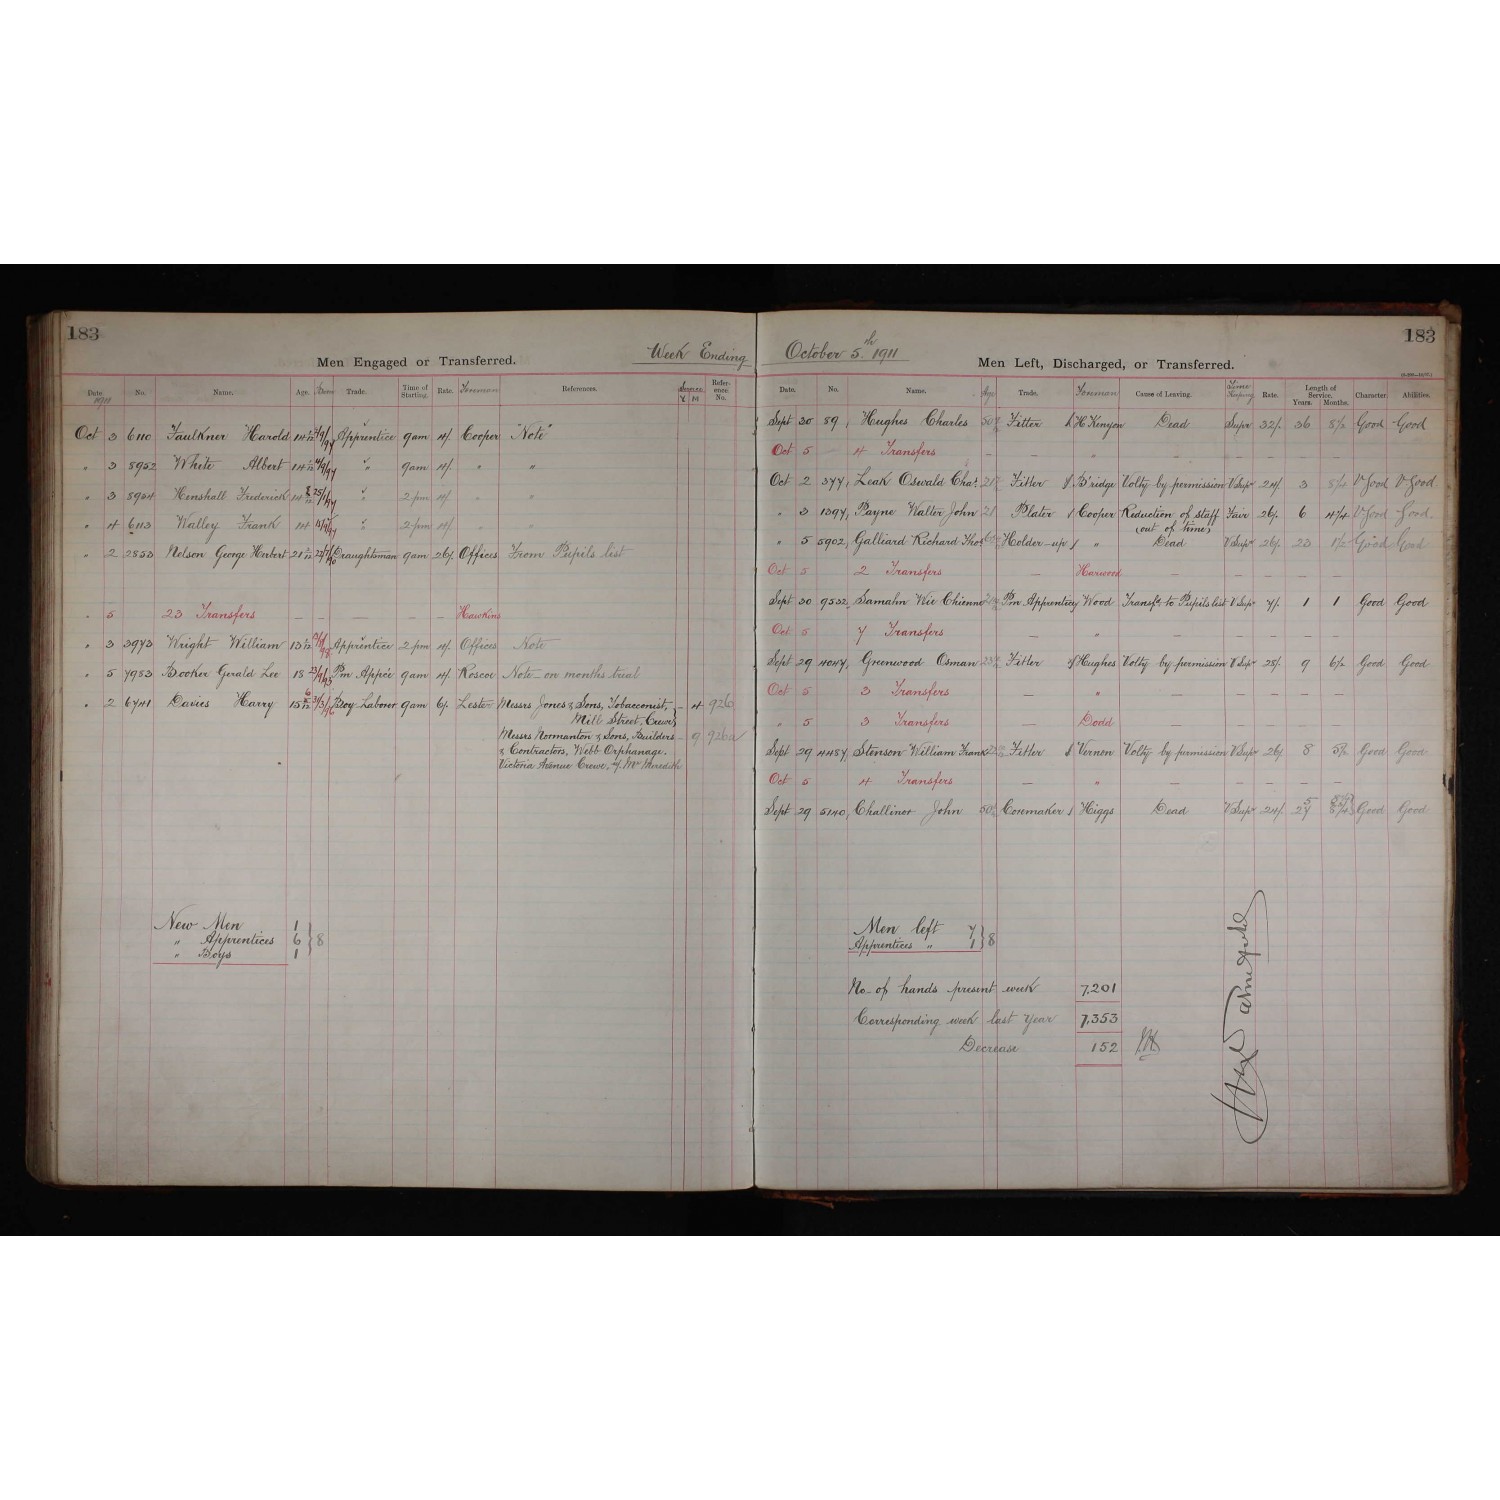 183
Week Ending
Men Engaged or Transferred.
Date No. Name. Age. Born Trade. Time of Starting. Rate. Foreman References. Service Y M Reference No.
1911
Oct 3 6110 Faulkner Harold 14 Apprentice 9am 4/. Cooper "Note"
" 3 8952 White Albert 14 " 9am 4/. " "
" 3 8954 Henshall Frederick 14 " 2pm 4/. " "
" 4 6113 Walley Frank 14 " 2pm 4/. " "
" 2 2853 Nelson George Herbert 21 Draughtsman 9am 26/. Offices From Pupils list
" 5 23 Transfers — — — — Hawkins
" 3 3973 Wright William 13 Apprentice 2pm 4/. Offices Note
" 5 7983 Booker Gerald Lee 18 Pm App'ce 9am 4/. Roscoe Note - on months trial
" 2 6741 Davies Harry 15 Boy Laborer 9am 6/. Lester Messrs Jones & Sons, Tobacconist, - 4 926
Mill Street, Crewe
Messrs Normanton & Sons, Builders - 9 926a
& Contractors, Webb Orphanage.
Victoria Avenue Crewe, Mr Meredith
New Men 1
" Apprentices 6 } 8
" Boys 1
183
October 5th 1911
Men Left, Discharged, or Transferred.
Date. No. Name. Age Trade. Foreman Cause of Leaving. Time Keeping Rate. Length of Service. Years. Months. Character Abilities.
Sept 30 89 Hughes Charles 50 Fitter H Kenyon Dead Supr 32/. 36 8½ Good Good
Oct 5 4 Transfers — — " — — — — — — —
Oct 2 377 Leak Oswald Chas. 21 Fitter B'ridge Volty by permission V Supr 24/. 3 V Good V Good
" 3 1397 Payne Walter John 21 Plater Cooper Reduction of staff Fair 26/. 6 4¾ V Good Good
(out of time)
" 5 5902 Galliard Richard Thos Holder-up " Dead V Supr 26/. 23 1½ Good Good
Oct 5 2 Transfers — Harwood — — — — — — —
Sept 30 9532 Samahn Wie Chienne Pm Apprentice Wood Transfd to Pupils list V Supr 7/. 1 1 Good Good
Oct 5 7 Transfers — " — — — — — — —
Sept 29 4047 Greenwood Osman 23 Fitter Hughes Volty by permission V Supr 28/. 9 6½ Good Good
Oct 5 3 Transfers — " — — — — — — —
" 5 3 Transfers — Dodd — — — — — — —
Sept 29 4487 Stenson William Frank Fitter Vernon Volty by permission V Supr 26/. 8 5½ Good Good
Oct 5 4 Transfers — " — — — — — — —
Sept 29 5140 Challinor John 50 Coremaker Higgs Dead V Supr 24/. 27 Good Good
Men left 7
Apprentices " 1 } 8
No of hands present week 7,201
Corresponding week last year 7,353
Decrease 152